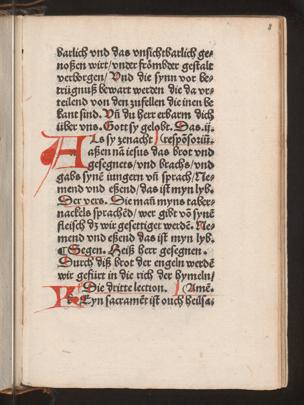 8
barlich vnd das vnsichtbarlich ge⸗
noßen wirt/vnder frömbder gestalt
verborgen/ Vnd die synn vor be⸗
trügnuß bewart werden die da vr⸗
teilend von den zufellen die inen be
kant sind. Vn̄ du herr erbarm dich
über vns. Gott sy gelobt. Das .ij.
Als sy zenacht respōsoriū.
aßen nā iesus das brot vnd
gesegnets/vnd brachs/vnd
gabs synē iungern vn̄ sprach/Ne⸗
mend vnd eßend/das ist myn lyb.
Der vers. Die mañ myns taber⸗
nackels sprached/wer gibt vō synē
fleisch dz wir gesettiger werdē. Ne⸗
mend vnd eßend das ist myn lyb.
Segen. Heiß herr gesegnen.
Durch diß brot der engeln werdē
wir gefürt in die rich der hymeln/
Die dritte lection. Amē.
Eyn sacramēt ist ouch heilsa⸗